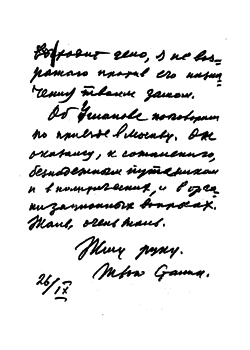 дело, я не воз-
ражаю против его назна-
чения твоим замом.
Об Уханове поговорим
по приезде в Москву. Он
оказался, к сожалению,
безнадежным путаником
и в политических, и в орга-
низационных вопросах.
Жаль, очень жаль.
Жму руку.
Твой Сталин.
26/IX